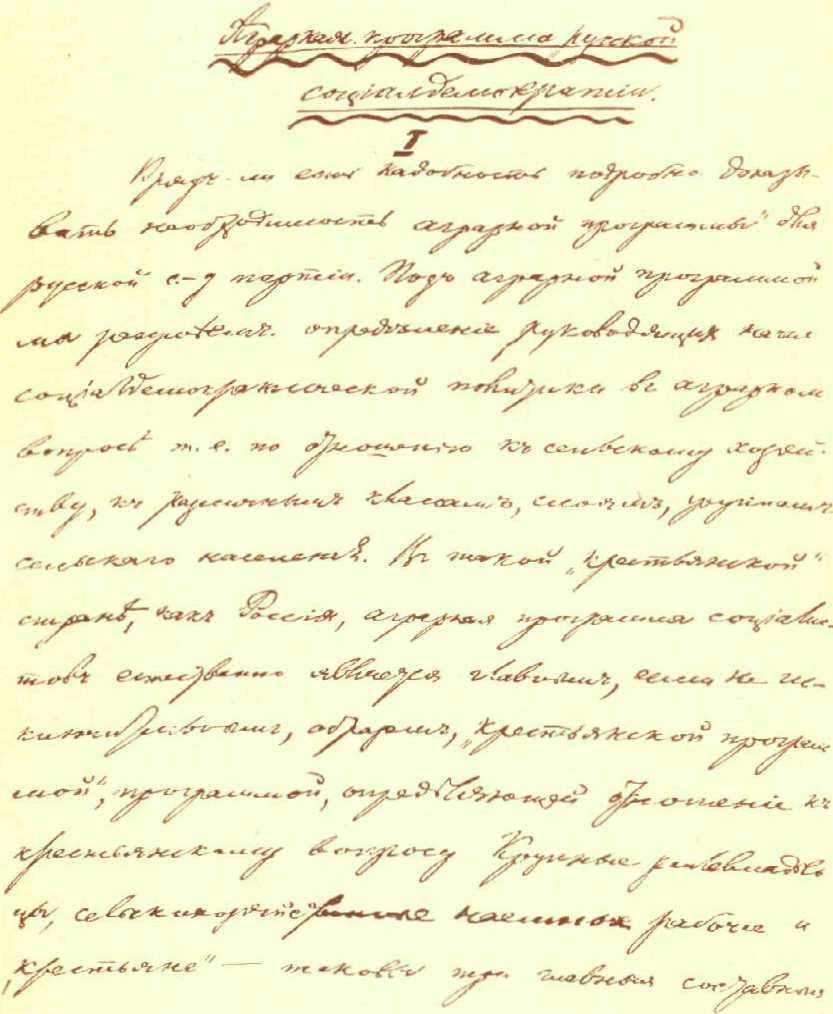 Аграрная программа русской
соціалдемократіи.
I
Врядъ-ли есть надобность подробно доказы-
вать необходимость "аграрной программы" для
русской с.-д партіи. Подъ аграрной программой
мы разумѣемъ опредѣленіе руководящихъ началъ
соціалдемократической политики въ аграрномъ
вопросѣ т. е. по отношенію къ сельскому хозяй-
ству, къ различнымъ классамъ, слоямъ, группамъ
сельскаго населенія. Въ такой „крестьянской"
странѣ, какъ Россія, аграрная программа соціалис-
товъ естественно является главнымъ, если не ис-
ключительнымъ, образомъ, „крестьянской програм
мой", программой, опредѣляющей отношеніе къ
крестьянскому вопросу Крупные землевладѣль
цы, сельскихозяйственные наемные рабочіе и
„крестьяне" — таковы три главныя составныя